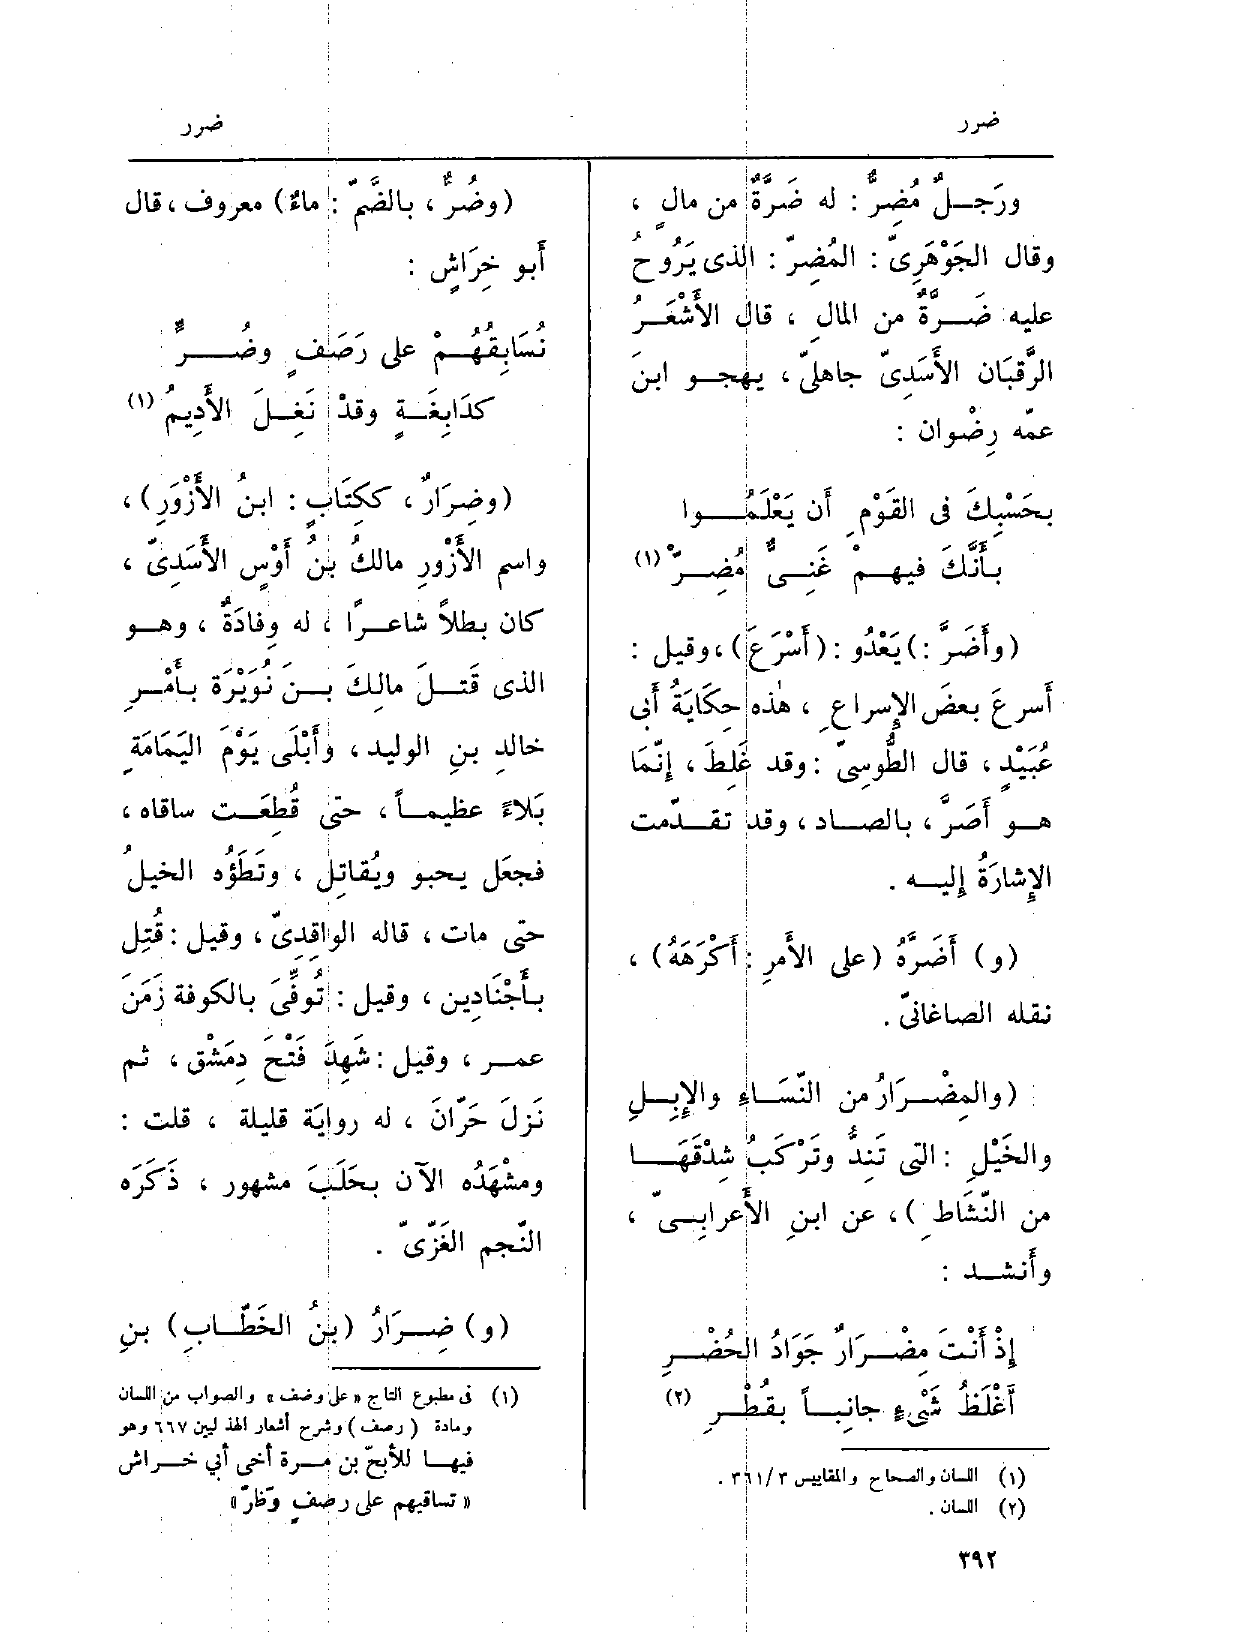 ضرر
ضرر
ورَجـلٌ مُضِرٌّ : له ضَرَّةٌ من مالٍ ،
وقال الجَوْهَرِىّ : المُضِرّ : الذى يَرُوحُ
عليه ضَـرَّةٌ من المالِ ، قال الأَشْعَـرُ
الرَّقَبَان الأَسَدِىّ جاهلىّ ، يهجـو ابنَ
عمّه رِضْوان :
بِحَسْبِكَ فى القَوْمِ أَن يَعْلَمُـوا
بأَنَّكَ فيهـمْ غَنِـىٌّ مُضِـرّْ (١)
(وأَضَرَّ :) يَعْدُو : (أَسْرَعَ) ، وقيل :
أَسرعَ بعضَ الإِسراعِ ، هٰذه حِكَايَةُ أَبى
عُبَيْدٍ ، قال الطُّوسِىّ : وقد غَلِطَ ، إِنّمَا
هـو أَصَرَّ ، بالصـاد ، وقد تقـدّمت
الإِشارَةُ إِليـه .
(و) أَضَرَّهُ (على الأَمرِ : أَكْرَهَهُ) ،
نقله الصاغانىّ .
(والمِضْـرَارُ من النّسَـاءِ والإِبِـلِ
والخَيْلِ : التى تَنِدُّ وتَرْكَبُ شِدْقَهَـا
من النَّشَاطِ ) ، عن ابنِ الأَعرابـىّ ،
وأَنشـد :
إِذْ أَنْتَ مِضْـرَارٌ جَوَادُ الحُضْـرِ
أَغْلَظُ شَىْءٍ جانبـاً بقُطْـرِ (٢)
(١) اللسان والصحاح والمقاييس ٣٦١/٣ .
(٢) اللسان .
(وضُرٌّ ، بالضَّمّ : ماءٌ) معروف ، قال
أَبو خِرَاشٍ :
نُسَابِقُهُـمْ على رَصَفٍ وضُـرٍّ
كدَابِغَـةٍ وقدْ نَغِـلَ الأَدِيمُ (١)
(وضِرَارٌ ، ككِتَابٍ : ابنُ الأَزْوَرِ) ،
واسم الأَزْورِ مالكُ بنُ أَوْسٍ الأَسَدِىّ ،
كان بطلاً شاعـرًا ، له وِفادَةٌ ، وهـو
الذى قَتـلَ مالِكَ بـنَ نُوَيْرَة بـأَمْـرِ
خالدِ بنِ الوليد ، وأَبْلَى يَوْمَ اليَمَامَةِ
بَلاءً عظيمـاً ، حتى قُطِعَـت ساقاه ،
فجعَل يحبو ويُقاتِل ، وتَطَؤُه الخيلُ
حتى مات ، قاله الواقِدِىّ ، وقيل : قُتِل
بأَجْنَادِين ، وقيل : تُوفِّىَ بالكوفة زَمَنَ
عمـر ، وقيل : شَهِدَ فَتْحَ دِمَشْق ، ثم
نَزلَ حَرّانَ ، له روايَة قليلة ، قلت :
ومشْهَدُه الآن بحَلَبَ مشهور ، ذَكَرَه
النّجم الغَزّىّ .
(و) ضِـرَارُ (بنُ الخَطّـابِ) بنِ
(١) فى مطبوع التاج «على وضف» والصواب من اللسان
ومادة ( رصف ) وشرح أشعار الهذليين ٦٦٧ وهو
فيهـا للأبحّ بن مـرة أخى أبي خـراش
« تساقيهم على رصفٍ وَظرّ»
٣٩٢